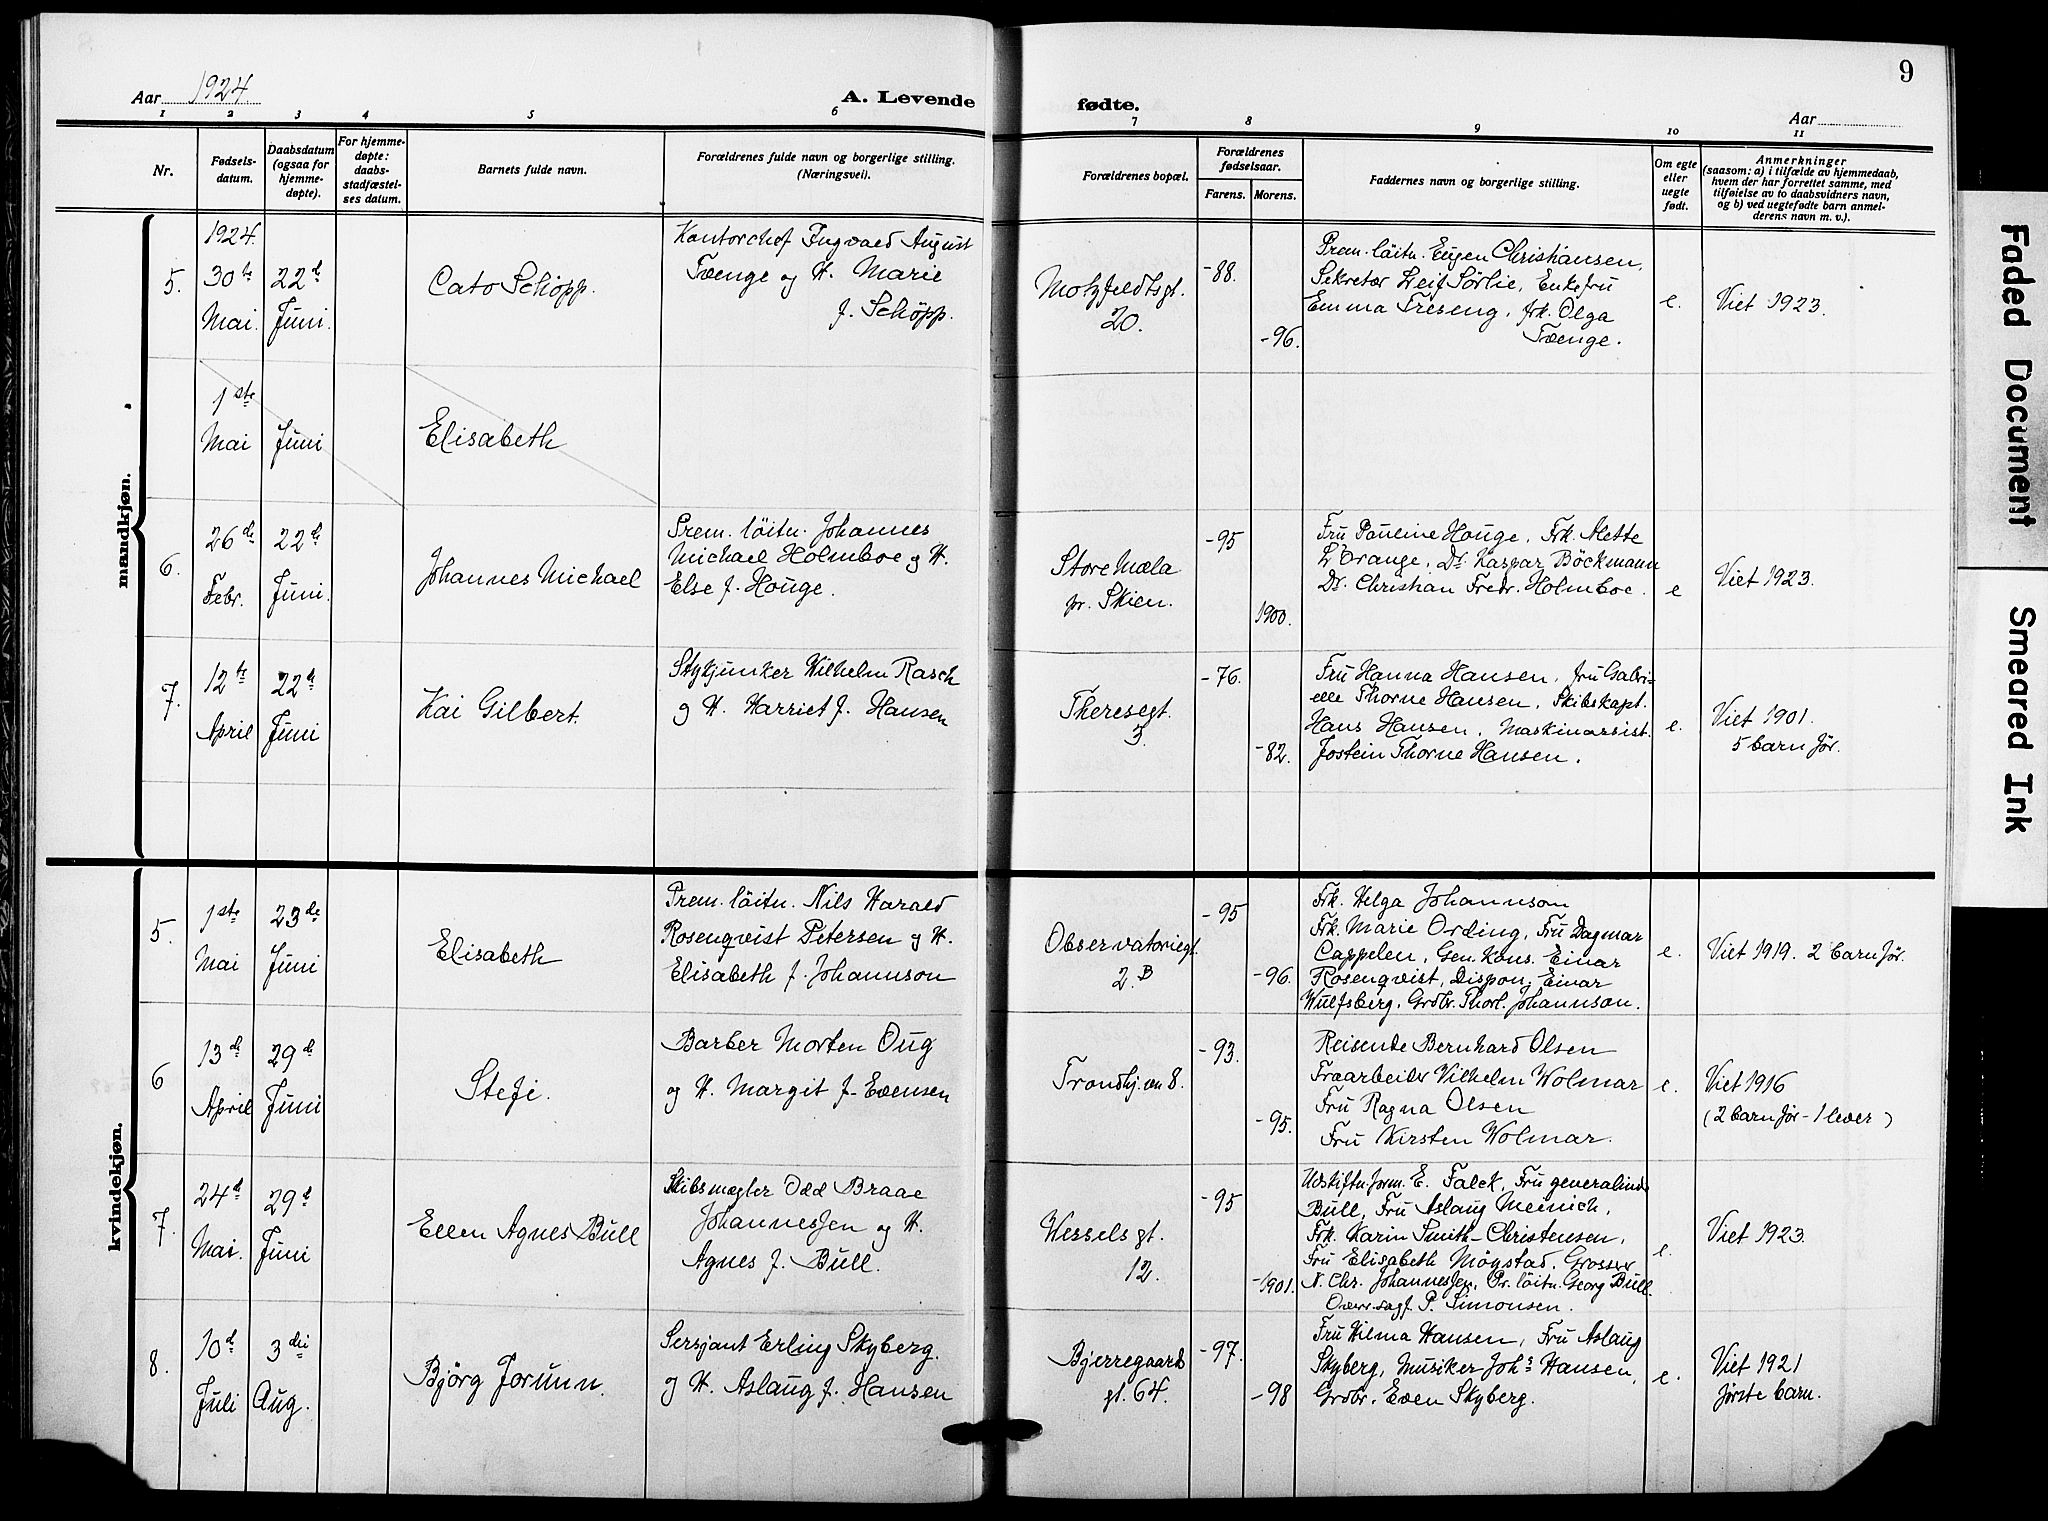 Aar 1924. A. Levende fødte. Aar 9
1 2 3 4 5 6 7 8 9 10 11
Nr.
Fødsels-
datum.
Daabsdatum
(ogsaa for
hjemme-
døpte).
For hjemme-
døpte:
daabs-
stadfæstel-
ses datum.
Barnets fulde navn.
Forældrenes fulde navn og borgerlige stilling.
(Næringsvei).
Forældrenes bopæl.
Forældrenes
fødselsaar.
Farens. Morens.
Faddernes navn og borgerlige stilling.
Om egte
eller
uegte
født.
Anmerkninger
(saasom: a) i tilfælde av hjemmedaab,
hvem der har forrettet samme, med
tilføielse av to daabsvidners navn,
og b) ved uegtefødte barn anmel-
derens navn m. v.).
mandkjøn.
5.
1924.
30te
Mai.
22d
Juni.
Cato Schöpp.
Kontorchef Ingvald August
Trænge og H. Marie
f. Schöpp.
Motzfeldtsgt.
20.
-88.
-96.
Prem. löitn. Eugen Christiansen,
Sekretær Leif Sørlie, Enkefru
Emma Treseng, frk. Olga
Trænge.
e.
Viet 1923.
1ste
Mai
Juni
Elisabeth
6.
26de
Febr.
22de
Juni.
Johannes Michael
Prem. löitn. Johannes
Michael Holmboe og H.
Else f. Houge.
Store Mæla
pr. Skien.
-95
1900.
Fru Pauline Houge, Frk. Mette
L'Orange, Dr. Kaspar Böckmann
Dr. Christian Fredr. Holmboe.
e
Viet 1923.
7.
12te
April
22de
Juni
Kai Gilbert.
Stykjunker Wilhelm Rasch
og H. Harriet f. Hansen
Theresegt.
3.
-76.
-82.
Fru Hanna Hansen, fru Gabri-
elle Thorne Hansen, Skibskapt.
Hans Hansen, Maskinassist.
Jostein Thorne Hansen.
e.
Viet 1901.
5 barn før.
kvindekjøn.
5.
1ste
Mai
23de
Juni
Elisabeth
Prem. löitn. Nils Harald
Rosenqvist Petersen og H.
Elisabeth f. Johannson
Observatoriegt.
2.B
-95
-96.
Frk. Helga Johannson
Frk. Marie Ording, Fru Dagmar
Cappelen, Gen. Kons. Einar
Rosenqvist, Dispon. Einar
Wulfsberg, Grdbr. Thorl. Johannson.
e.
Viet 1919. 2 barn før.
6
13de
April
29de
Juni
Stefi.
Barber Morten Oug
og H. Margit f. Evensen
Trondhj.vn 8.
-93.
-95.
Reisende Bernhard Olsen
Fraarbeider Vilhelm Wolmar
Fru Ragna Olsen
Fru Kirsten Wolmar.
e.
Viet 1916
(2 barn før - 1 lever)
7.
24d
Mai.
29d
Juni
Ellen Agnes Bull
Skibsmægler Odd Braae
Johannesjen og H.
Agnes f. Bull.
Wesselsgt.
12.
-95
-1901.
Udskiftn.form. E. Falck, Fru generalinde
Bull, Fru Aslaug Meinich,
Frk. Karin Smith-Christensen,
Fru Elisabeth Mögstad, Grosser
N. Chr. Johannesjen, Pr. löitn. Georg Bull.
Overrsagf. P. Simonsen.
e.
Viet 1923.
8.
10d
Juli
3die
Aug.
Björg Jorunn.
Sersjant Erling Skyberg.
og H. Aslaug f. Hansen
Bjerregaards
gt. 64.
-97.
-98
Fru Hilma Hansen, Fru Aslaug
Skyberg, Musiker Johs Hansen,
Grdbr. Even Skyberg.
e.
Viet 1921
første barn.
Faded Document
Smeared Ink